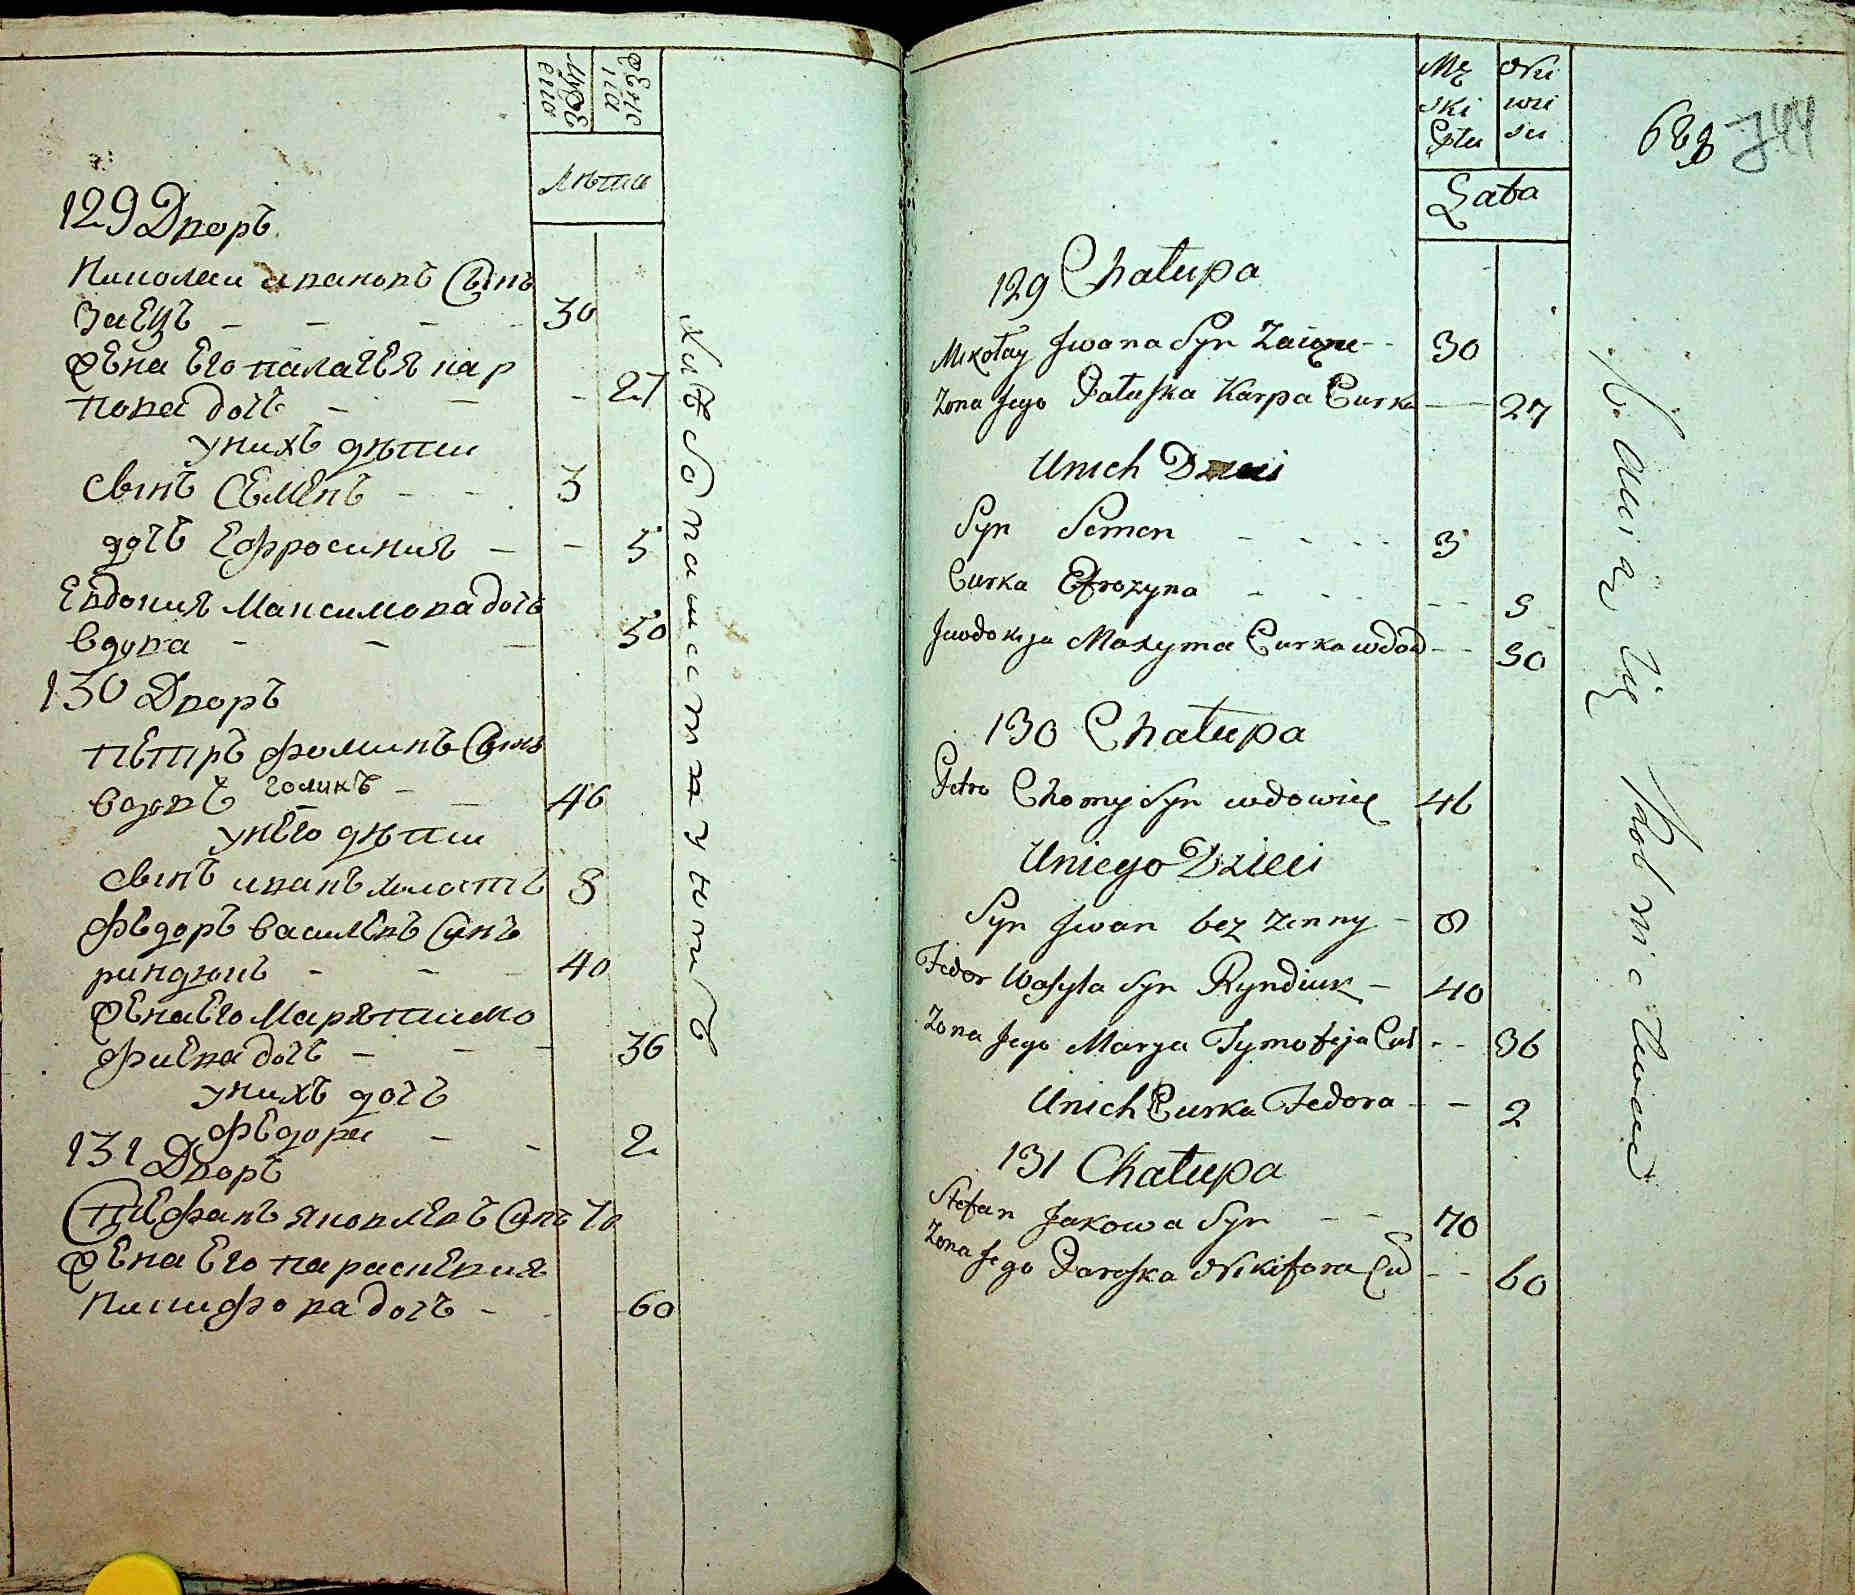 мужеско
женска
Лѣта
129 Дворъ
Николаи ивановъ Сынъ
Заецъ - - - - 30
жена Его палагея кар
пова дочь - - - 27
у нихъ дѣти
сынъ Семенъ - - 3
дочь Ефросиния - - 5
Евдокия Максимова дочь
вдова - - - 50
130 Дворъ
Петръ фоминъ Сынъ
вдовъ голикъ - - 46
у него дѣти
сынъ иванъ холостъ 8
Федоръ василевъ Сынъ
риндюкъ - - - 40
жена Его Маря тимо
фиева дочь - - - 36
у нихъ дочь
федора - - 2
131 Дворъ
Стефанъ яковлевъ Сынъ 70
жена Его параскевия
Никифорова дочь - - 60
Хлебопашествуютъ
Mę
ski
Płci
Niu
wii
sci
Lata
629 744
129 Chałupa
Mikołay Jwana Syn Zaiąc - - 30
Zona Jego Pałaſka Karpa Curka - - 27
Unich Dzieci
Syn Semen - - - - 3
Curka Efrozyna - - - - 5
Jewdokija Maxyma Curka wdowa - - 50
130 Chałupa
Petro Chomy Syn wdowiec 46
Uniego Dzieci
Syn Jwan bez zenny - 8
Fedor Waſyla Syn Ryndiuk - 40
Zona Jego Marya Tymofeja Cur - - 36
Unich Curka Fedora - - 2
131 Chałupa
Stefan Jakowa Syn - - 70
Zona Jego Paraſka Nikifora Cu - - 60
Bawią się Robnictwem